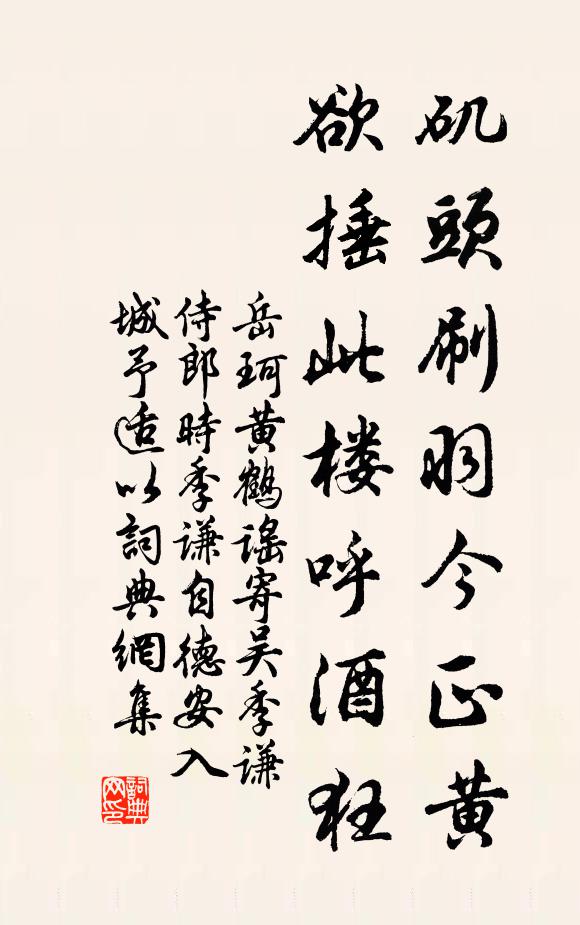 矶頭刷羽今正黄
欲捶此楼呼酒狂
岳珂黄鹤謡寄吴季谦
侍郎時季谦自德安入
城予适以詞典網集
詞典网印